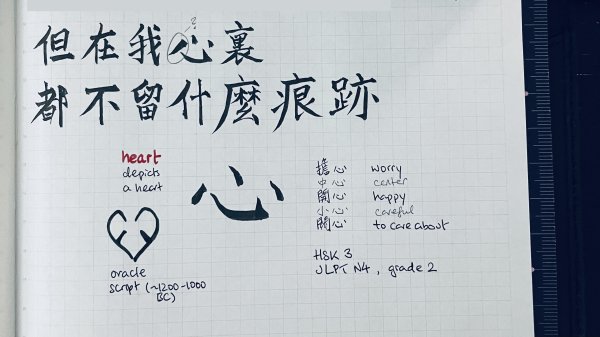 但在我心裏
都不留什麼痕跡
heart
depicts
a heart
oracle
script (~1200-1000
BC)
心
擔心 worry
中心 center
開心 happy
小心 careful
關心 to care about
HSK 3
JLPT N4, grade 2